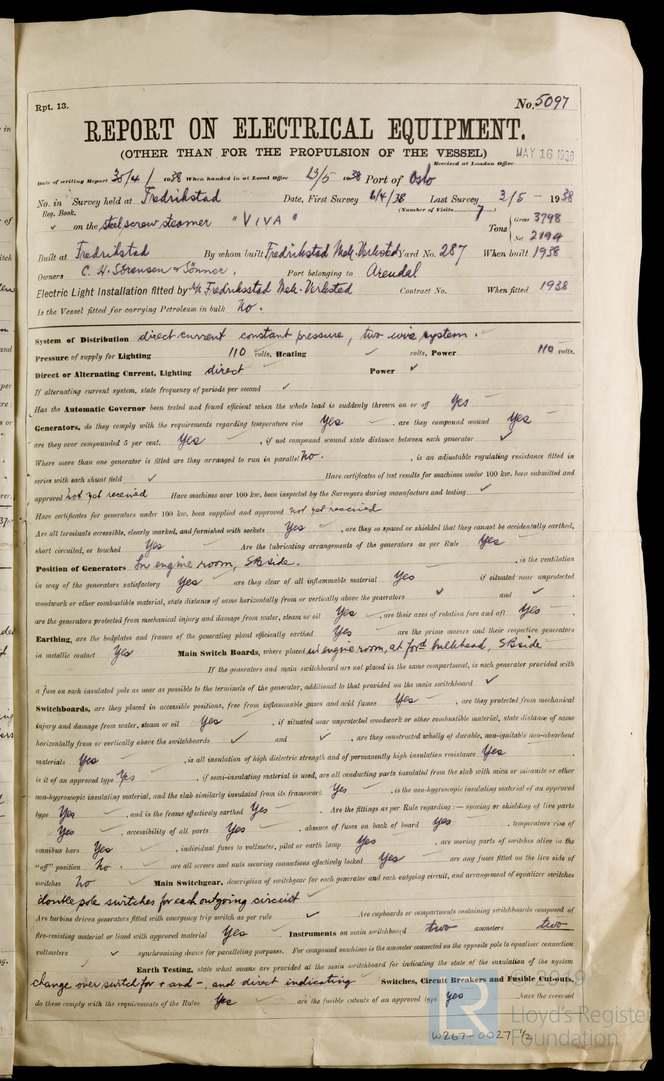 Rpt. 13.
No. 5097
REPORT ON ELECTRICAL EQUIPMENT.
(OTHER THAN FOR THE PROPULSION OF THE VESSEL)
MAY 16 1938
Received at London Office
Date of writing Report 30/4/ 1938 When handed in at Local Office 13/5 1938 Port of Oslo
No. in Survey held at Fredrikstad Date, First Survey 6/4/38 Last Survey 3/5 - 1938
Reg. Book. (Number of Visits 7)
✓ on the steel, screw, steamer "VIVA" Tons { Gross 3798
Net 2194
Built at Fredrikstad By whom built Fredrikstad Mek. Verksted Yard No. 287 When built 1938
Owners C. H. Sörensen & Sönner. Port belonging to Arendal
Electric Light Installation fitted by A/S Fredriksstad Mek. Verksted Contract No. When fitted 1938
Is the Vessel fitted for carrying Petroleum in bulk No.
System of Distribution direct current constant pressure, two wire system. ✓
Pressure of supply for Lighting 110 volts, Heating ✓ volts, Power 110 volts.
Direct or Alternating Current, Lighting direct Power ✓
If alternating current system, state frequency of periods per second ✓
Has the Automatic Governor been tested and found efficient when the whole load is suddenly thrown on or off Yes
Generators, do they comply with the requirements regarding temperature rise Yes , are they compound wound Yes
are they over compounded 5 per cent. Yes , if not compound wound state distance between each generator ✓
Where more than one generator is fitted are they arranged to run in parallel No. , is an adjustable regulating resistance fitted in
series with each shunt field ✓ Have certificates of test results for machines under 100 kw. been submitted and
approved not yet received Have machines over 100 kw. been inspected by the Surveyors during manufacture and testing ✓
Have certificates for generators under 100 kw. been supplied and approved not yet received
Are all terminals accessible, clearly marked, and furnished with sockets Yes , are they so spaced or shielded that they cannot be accidentally earthed,
short circuited, or touched Yes Are the lubricating arrangements of the generators as per Rule Yes
Position of Generators In engine room, SB side. , is the ventilation
in way of the generators satisfactory Yes are they clear of all inflammable material Yes , if situated near unprotected
woodwork or other combustible material, state distance of same horizontally from or vertically above the generators ✓ and ✓
are the generators protected from mechanical injury and damage from water, steam or oil Yes , are their axes of rotation fore and aft Yes
Earthing, are the bedplates and frames of the generating plant efficiently earthed Yes are the prime movers and their respective generators
in metallic contact Yes Main Switch Boards, where placed in engine room, at ford bulkhead, SB side
If the generators and main switchboard are not placed in the same compartment, is each generator provided with
a fuse on each insulated pole as near as possible to the terminals of the generator, additional to that provided on the main switchboard ✓
Switchboards, are they placed in accessible positions, free from inflammable gases and acid fumes Yes , are they protected from mechanical
injury and damage from water, steam or oil Yes , if situated near unprotected woodwork or other combustible material, state distance of same
horizontally from or vertically above the switchboards ✓ and ✓ , are they constructed wholly of durable, non-ignitable non-absorbent
materials Yes , is all insulation of high dielectric strength and of permanently high insulation resistance Yes
is it of an approved type Yes , if semi-insulating material is used, are all conducting parts insulated from the slab with mica or micanite or other
non-hygroscopic insulating material, and the slab similarly insulated from its framework Yes , is the non-hygroscopic insulating material of an approved
type Yes , and is the frame effectively earthed Yes . Are the fittings as per Rule regarding :— spacing or shielding of live parts
Yes , accessibility of all parts Yes , absence of fuses on back of board Yes , temperature rise of
omnibus bars Yes , individual fuses to voltmeter, pilot or earth lamp Yes , are moving parts of switches alive in the
"off" position No. are all screws and nuts securing connections effectively locked Yes are any fuses fitted on the live side of
switches No Main Switchgear, description of switchgear for each generator and each outgoing circuit, and arrangement of equalizer switches
double pole switches for each outgoing circuit
Are turbine driven generators fitted with emergency trip switch as per rule ✓ Are cupboards or compartments containing switchboards composed of
fire-resisting material or lined with approved material Yes Instruments on main switchboard two ammeters two
voltmeters ✓ synchronising device for paralleling purposes. For compound machines is the ammeter connected on the opposite pole to equaliser connection
Earth Testing, state what means are provided at the main switchboard for indicating the state of the insulation of the system
change over switch for + and -, and direct indicating Switches, Circuit Breakers and Fusible Cut-outs,
do these comply with the requirements of the Rules Yes are the fusible cutouts of an approved type yes have the reversed
© 2019
Lloyd's Register
Foundation
W267-0027 1/2